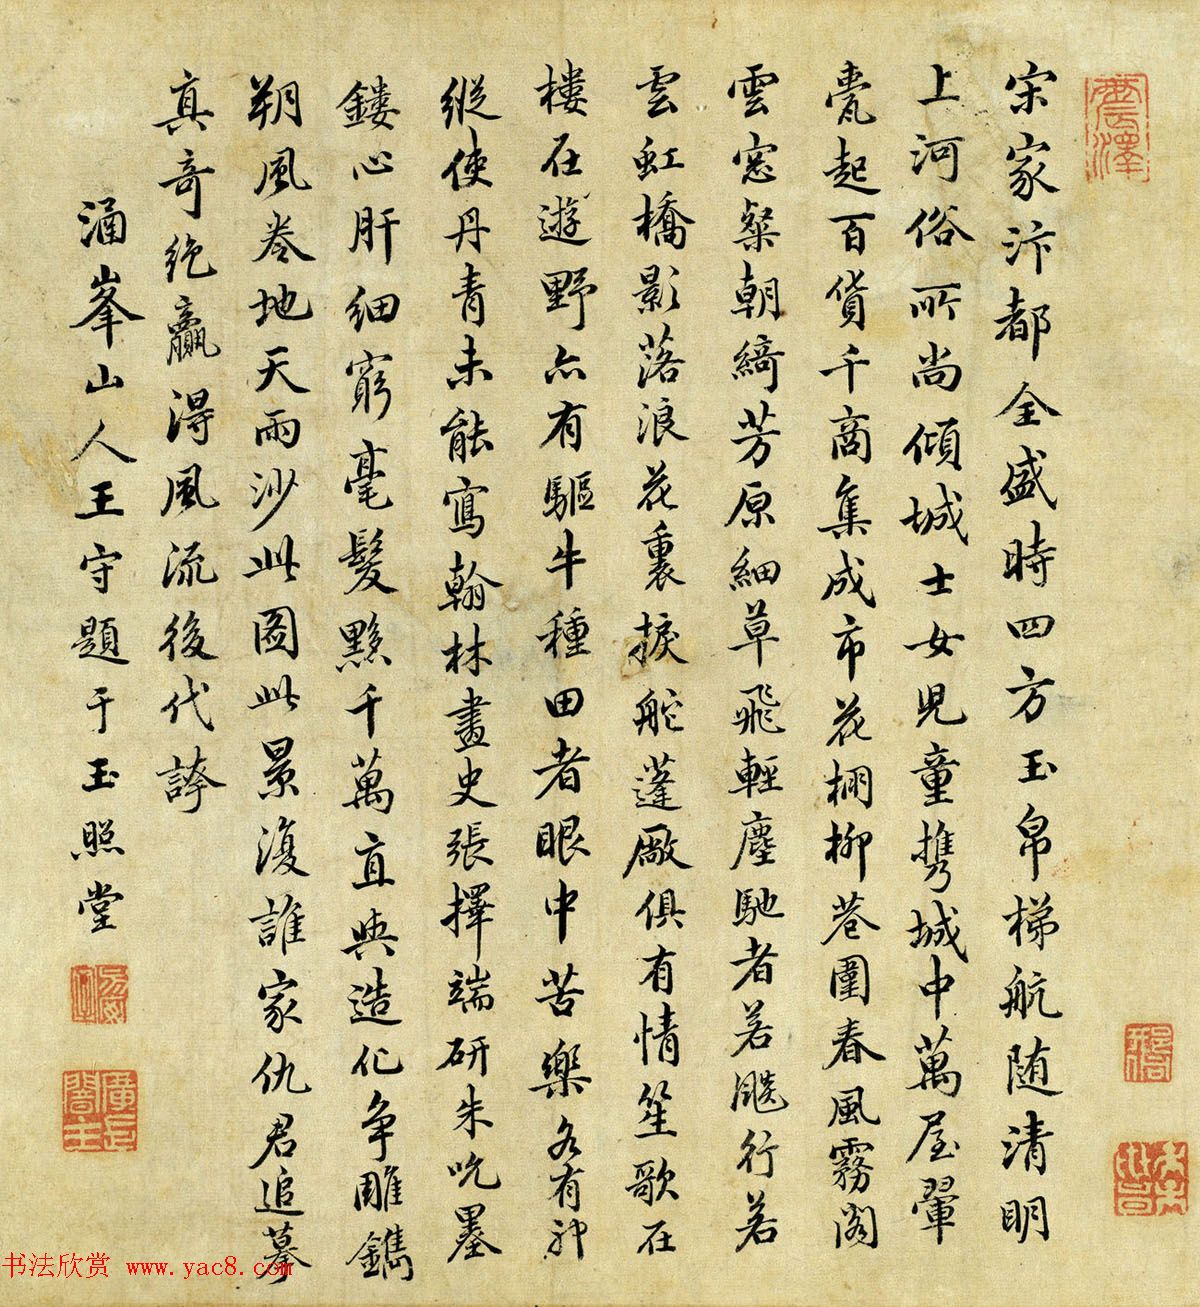 震澤
宋家汴都全盛時四方玉帛梯航随清明
上河俗所尚傾城士女兒童携城中萬屋翬
甍起百貨千商集成市花棚柳巷圍春風霧閣
雲窓粲朝綺芳原細草飛輕塵馳者若飈行若
雲虹橋影落浪花裏捩舵蓬廠俱有情笙歌在
樓在遊野亦有驅牛種田者眼中苦樂各有神
縱使丹青未能寫翰林畫史張擇端研朱吮墨
鏤心肝細窮毫髮黟千萬直與造化争雕鐫
朔風卷地天雨沙此圖此景復誰家仇君追摹
真奇絶贏得風流後代誇
涵峯山人王守題于玉照堂
廣長闇主
书法欣赏 www.yac8.com